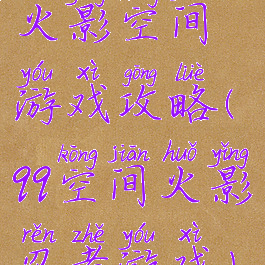 火影空间
yóu xì gōng lüè
游戏攻略(
kōng jiān huǒ yǐng
99空间火影
rěn zhě yóu xì
忍者游戏)